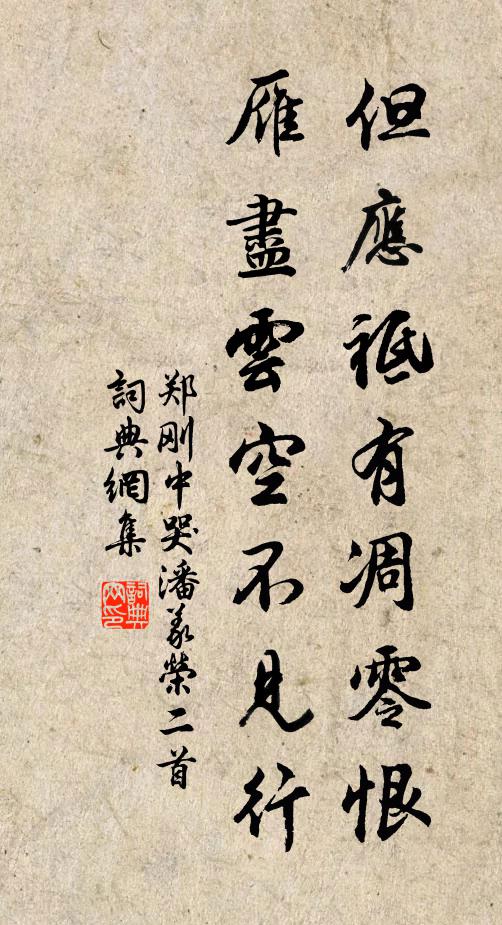 但應祗有凋零恨
雁盡雲空不見行
郑刚中哭潘义荣二首
詞典網集
詞典
网印